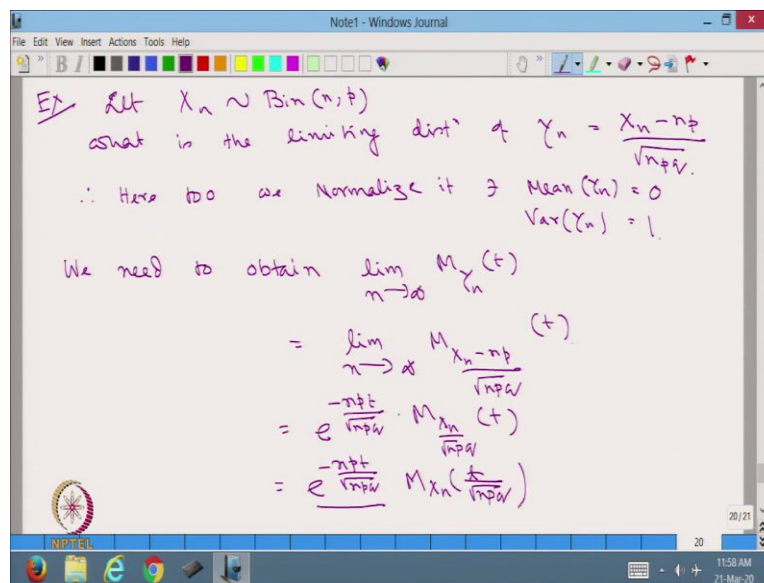 Note1 - Windows Journal
File Edit View Insert Actions Tools Help
Ex Let Xn ~ Bin(n, p)
what is the limiting distⁿ of Yn = (Xn - np)/√npq.
∴ Here too we Normalize it ∋ Mean(Yn) = 0
Var(Yn) = 1.
We need to obtain lim n→∞ M_Yn (t)
= lim n→∞ M_(Xn - np)/√npq (t)
= e^(-npt/√npq) · M_Xn/√npq (t)
= e^(-npt/√npq) M_Xn (t/√npq)
20/21
NPTEL
20
11:58 AM
21-Mar-20